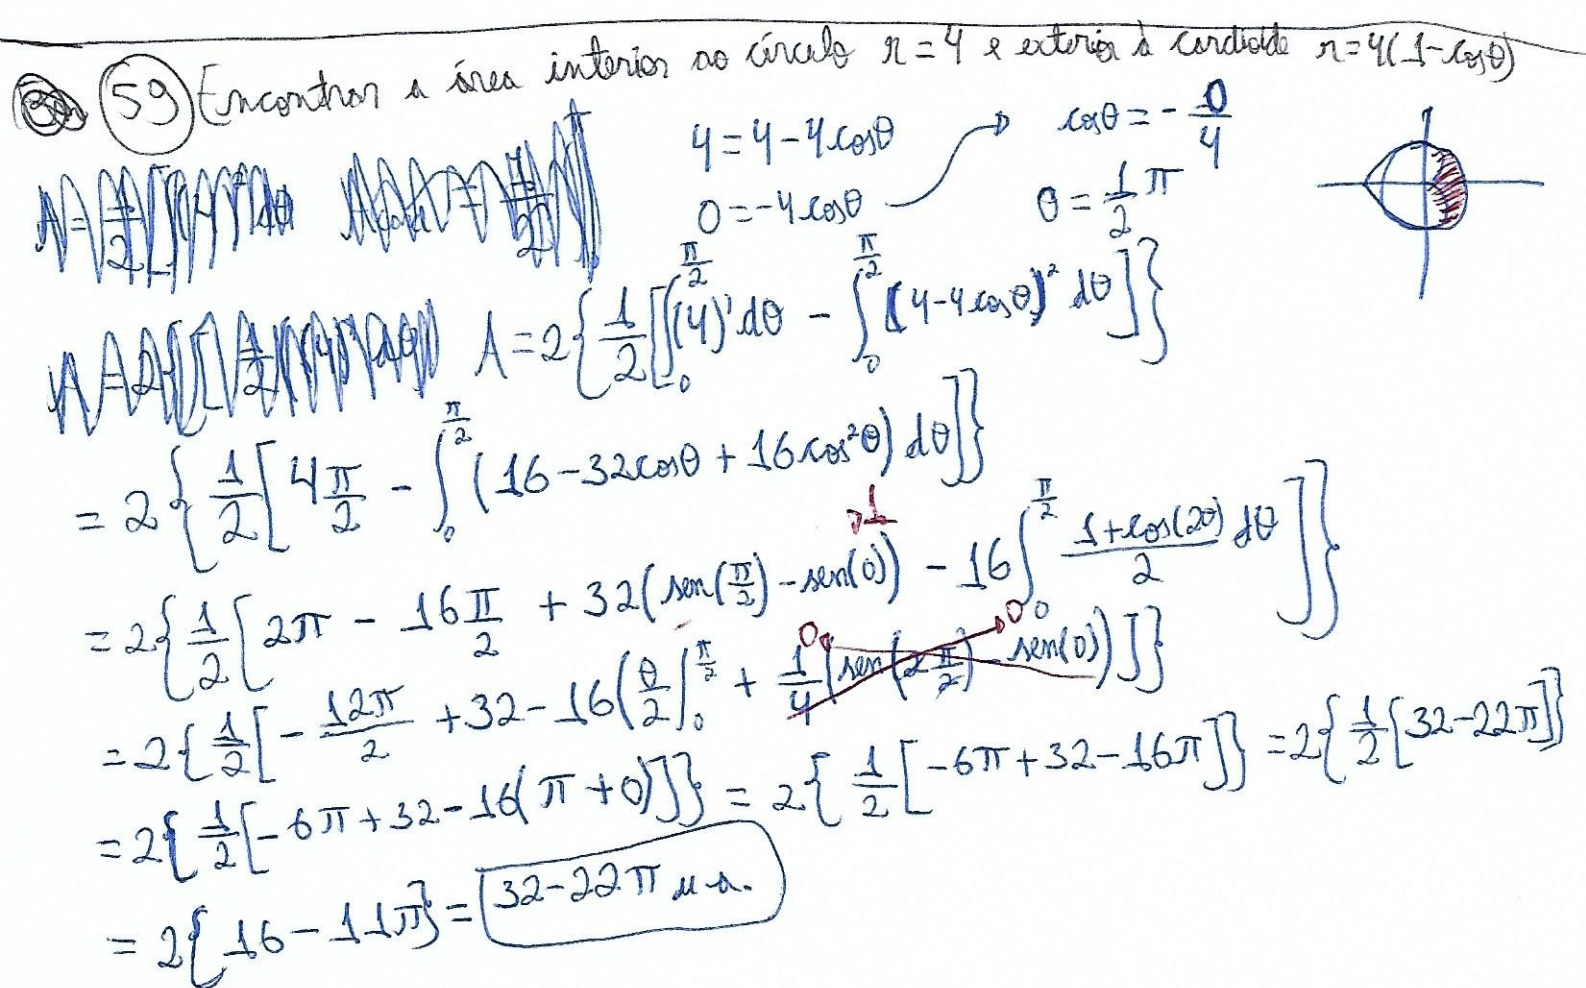 59) Encontrar a área interior ao círculo r=4 e exterior à cardioide r=4(1-cosθ)
4=4-4cosθ → cosθ=-0/4
0=-4cosθ θ=1/2 π
A=2{1/2[∫_0^{π/2} (4)' dθ - ∫_0^{π/2} (4-4cosθ)² dθ]}
=2{1/2[4π/2 - ∫_0^{π/2} (16-32cosθ+16cos²θ) dθ]}
=2{1/2[2π - 16π/2 + 32(sen(π/2)-sen(0)) 1 - 16∫_0^{π/2} (1+cos(2θ))/2 dθ]}
=2{1/2[-12π/2 + 32 - 16(θ/2|_0^{π/2} + 1/4(sen(2π/2) - sen(0))]} 0 0
=2{1/2[-6π+32-16(π+0)]} = 2{1/2[-6π+32-16π]} = 2{1/2[32-22π]}
=2{16-11π} = 32-22π u.a.